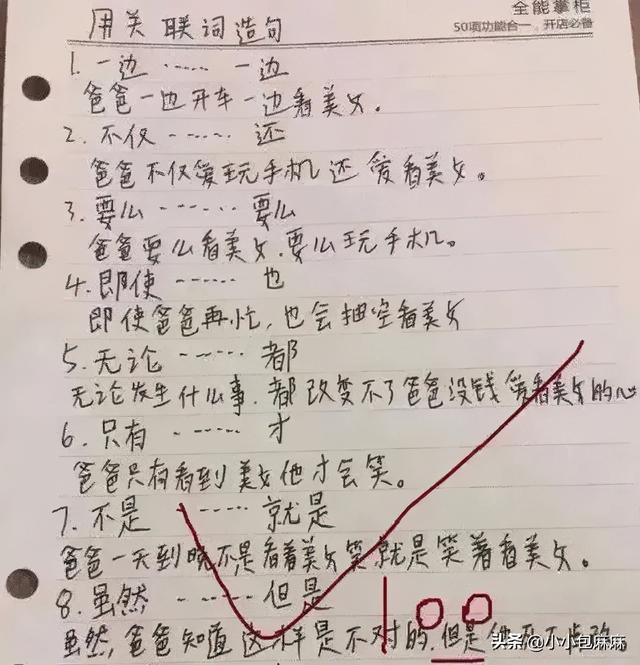 全能掌柜
50项功能合一,开店必备
用关联词造句
1. 一边 …… 一边
爸爸一边开车一边看美女。
2. 不仅 …… 还
爸爸不仅爱玩手机还爱看美女。
3. 要么 …… 要么
爸爸要么看美女.要么玩手机。
4. 即使 …… 也
即使爸爸再忙,也会抽空看美女
5. 无论 …… 都
无论发生什么事.都改变不了爸爸没钱爱看美女的心
6. 只有 …… 才
爸爸只有看到美女他才会笑。
7. 不是 …… 就是
爸爸一天到晚不是看着美女笑就是笑着看美女。
8. 虽然 …… 但是
虽然,爸爸知道这样是不对的.但是他
100
头条@小小包麻麻